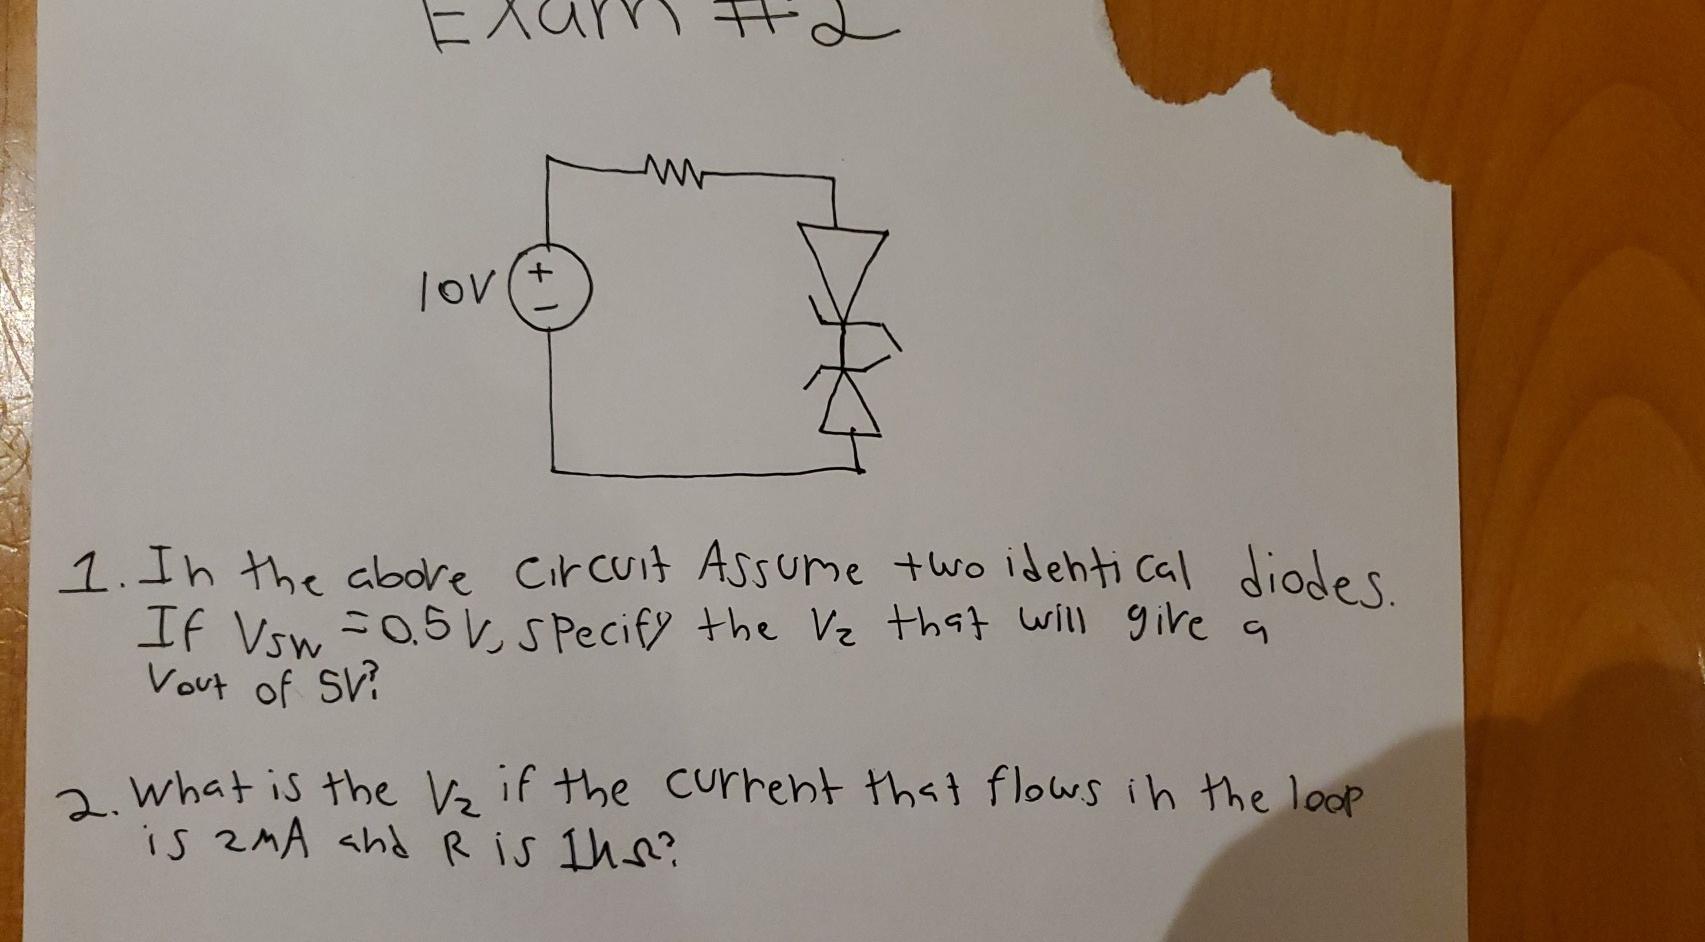 Exam #2
10V
+
−
1. In the above circuit Assume two identical diodes.
If Vsw = 0.5V, specify the Vz that will give a
Vout of 5V?
2. What is the Vz if the current that flows in the loop
is 2mA and R is 1kΩ?